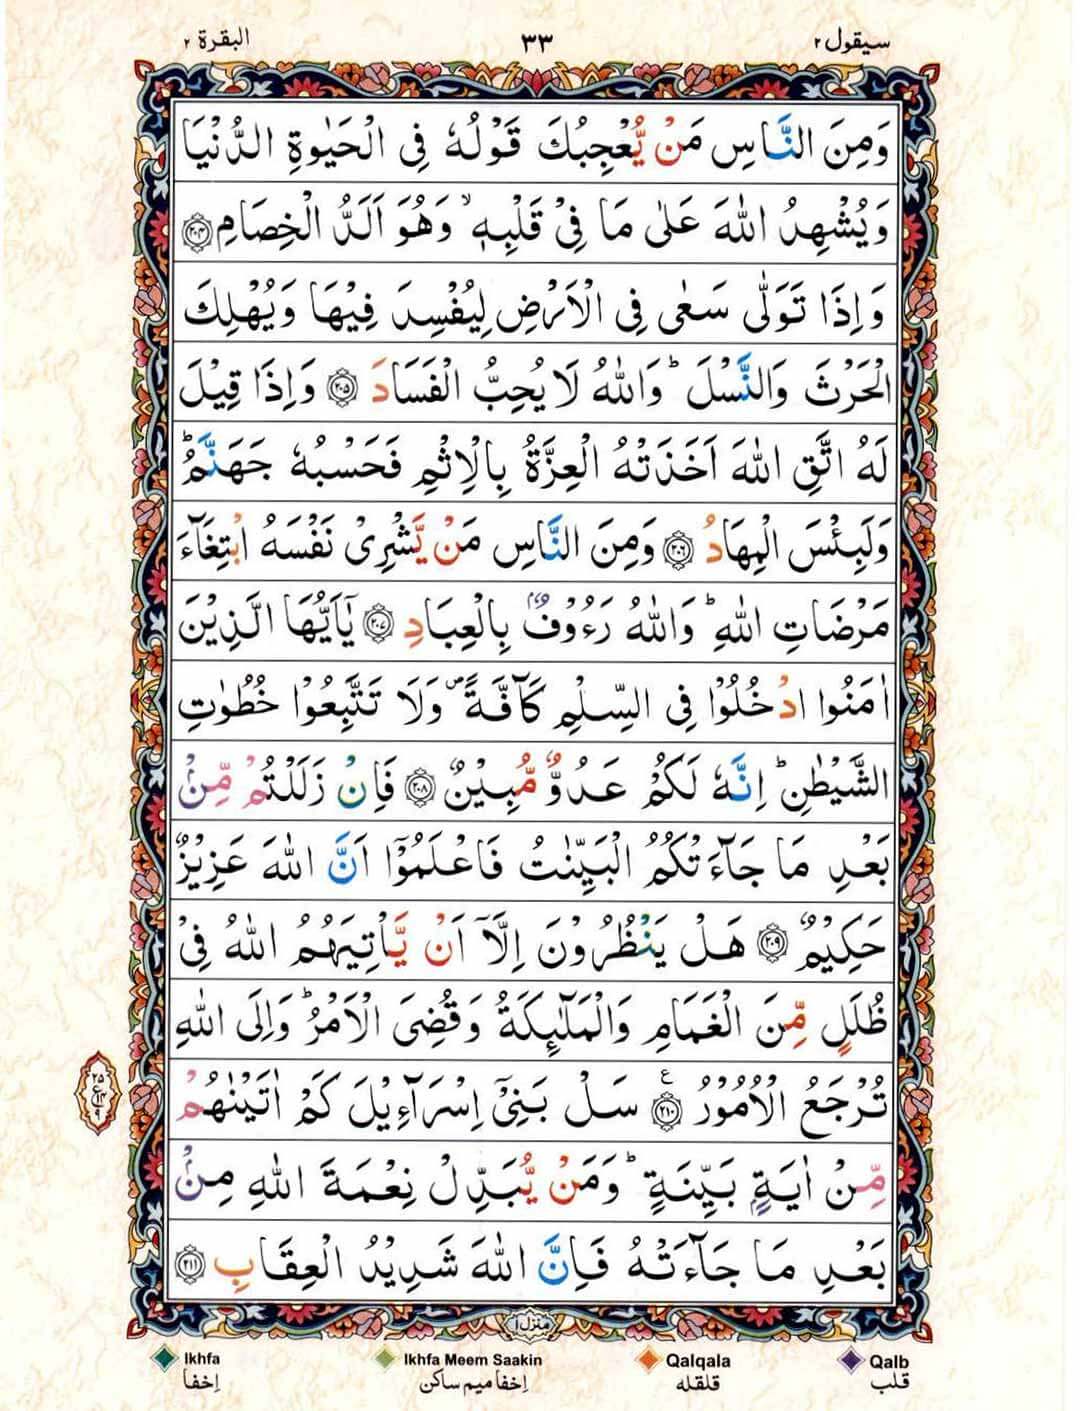 سيقول ٢ ٣٣ البقرة ٢
وَمِنَ النَّاسِ مَنْ يُّعْجِبُكَ قَوْلُهٗ فِى الْحَيٰوةِ الدُّنْيَا
وَيُشْهِدُ اللّٰهَ عَلٰى مَا فِىْ قَلْبِهٖ ۙ وَهُوَ اَلَدُّ الْخِصَامِ ۝٢٠٤
وَاِذَا تَوَلّٰى سَعٰى فِى الْاَرْضِ لِيُفْسِدَ فِيْهَا وَيُهْلِكَ
الْحَرْثَ وَالنَّسْلَ ؕ وَاللّٰهُ لَا يُحِبُّ الْفَسَادَ ۝٢٠٥ وَاِذَا قِيْلَ
لَهُ اتَّقِ اللّٰهَ اَخَذَتْهُ الْعِزَّةُ بِالْاِثْمِ فَحَسْبُهٗ جَهَنَّمُ ؕ
وَلَبِئْسَ الْمِهَادُ ۝٢٠٦ وَمِنَ النَّاسِ مَنْ يَّشْرِىْ نَفْسَهُ ابْتِغَآءَ
مَرْضَاتِ اللّٰهِ ؕ وَاللّٰهُ رَءُوْفٌۢ بِالْعِبَادِ ۝٢٠٧ يٰٓاَيُّهَا الَّذِيْنَ
اٰمَنُوا ادْخُلُوْا فِى السِّلْمِ كَآفَّةً ۪ وَلَا تَتَّبِعُوْا خُطُوٰتِ
الشَّيْطٰنِ ؕ اِنَّهٗ لَكُمْ عَدُوٌّ مُّبِيْنٌ ۝٢٠٨ فَاِنْ زَلَلْتُمْ مِّنْۢ
بَعْدِ مَا جَآءَتْكُمُ الْبَيِّنٰتُ فَاعْلَمُوْٓا اَنَّ اللّٰهَ عَزِيْزٌ
حَكِيْمٌ ۝٢٠٩ هَلْ يَنْظُرُوْنَ اِلَّآ اَنْ يَّاْتِيَهُمُ اللّٰهُ فِىْ
ظُلَلٍ مِّنَ الْغَمَامِ وَالْمَلٰٓئِكَةُ وَقُضِىَ الْاَمْرُ ؕ وَاِلَى اللّٰهِ
تُرْجَعُ الْاُمُوْرُ ۝٢١٠ ع سَلْ بَنِىْٓ اِسْرَآءِيْلَ كَمْ اٰتَيْنٰهُمْ
مِّنْ اٰيَةٍۭ بَيِّنَةٍ ؕ وَمَنْ يُّبَدِّلْ نِعْمَةَ اللّٰهِ مِنْۢ
بَعْدِ مَا جَآءَتْهُ فَاِنَّ اللّٰهَ شَدِيْدُ الْعِقَابِ ۝٢١١
٢٥ ع ٩
منزل ١
Ikhfa Ikhfa Meem Saakin Qalqala Qalb
إخفا إخفا ميم ساكن قلقله قلب